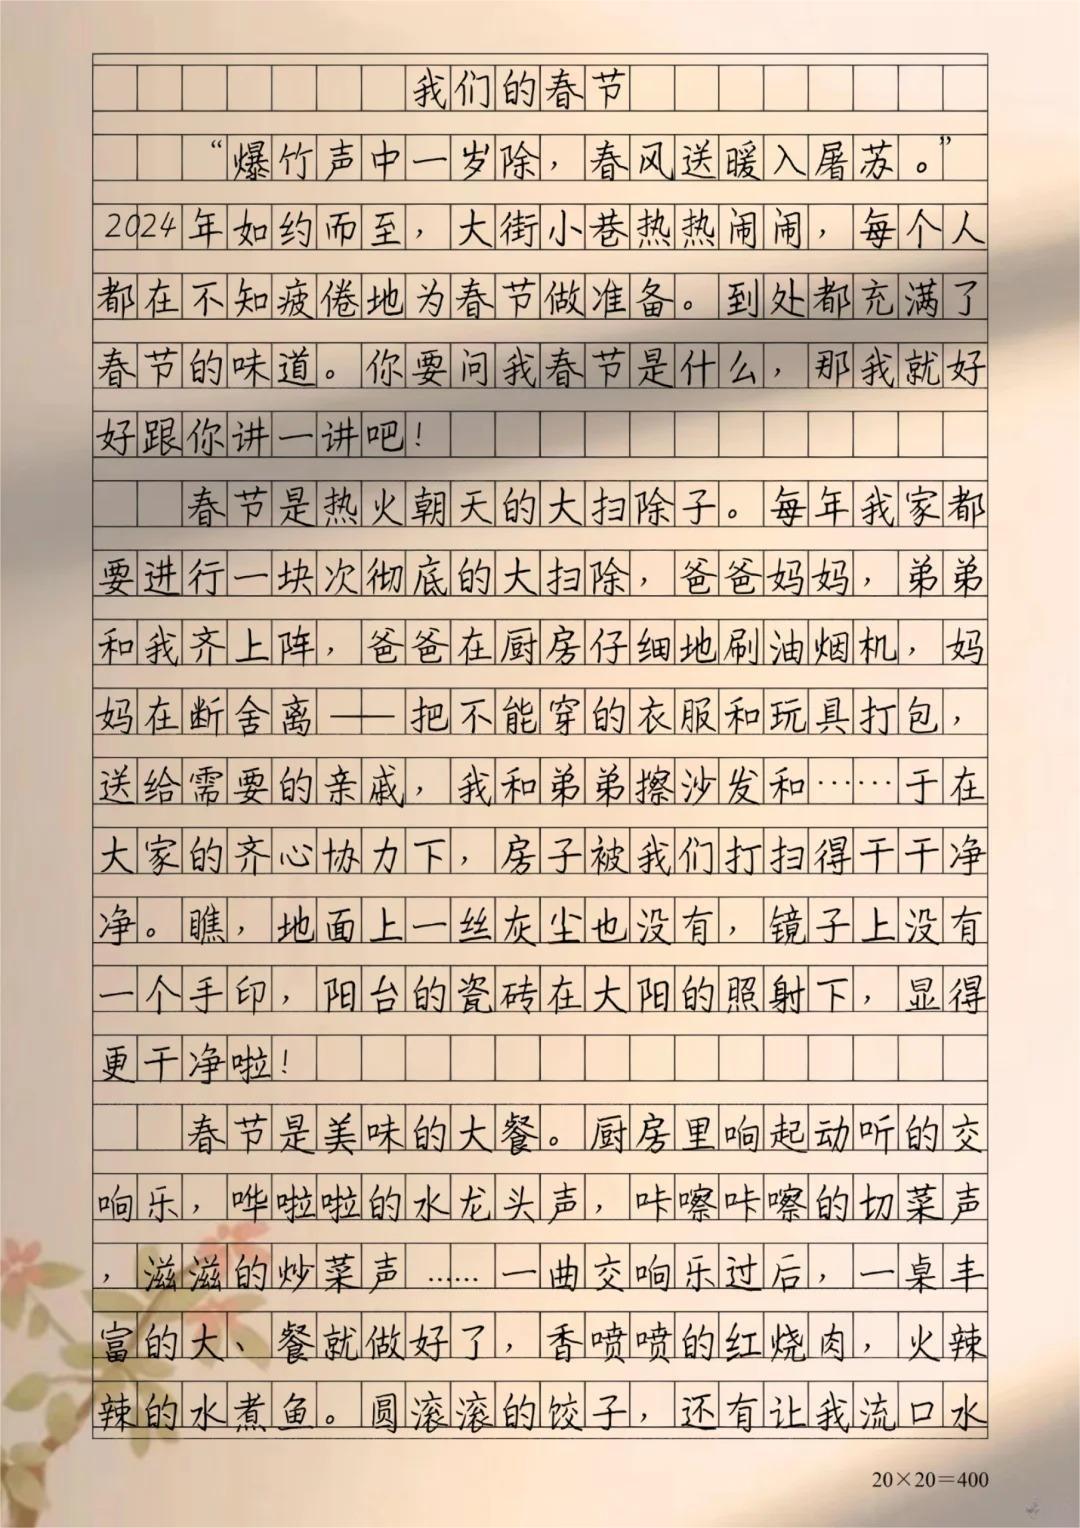 我们的春节
“爆竹声中一岁除，春风送暖入屠苏。”
2024年如约而至，大街小巷热热闹闹，每个人
都在不知疲倦地为春节做准备。到处都充满了
春节的味道。你要问我春节是什么，那我就好
好跟你讲一讲吧！
春节是热火朝天的大扫除子。每年我家都
要进行一块次彻底的大扫除，爸爸妈妈，弟弟
和我齐上阵，爸爸在厨房仔细地刷油烟机，妈
妈在断舍离——把不能穿的衣服和玩具打包，
送给需要的亲戚，我和弟弟擦沙发和……于在
大家的齐心协力下，房子被我们打扫得干干净
净。瞧，地面上一丝灰尘也没有，镜子上没有
一个手印，阳台的瓷砖在大阳的照射下，显得
更干净啦！
春节是美味的大餐。厨房里响起动听的交
响乐，哗啦啦的水龙头声，咔嚓咔嚓的切菜声
，滋滋的炒菜声……一曲交响乐过后，一桌丰
富的大、餐就做好了，香喷喷的红烧肉，火辣
辣的水煮鱼。圆滚滚的饺子，还有让我流口水
20×20=400